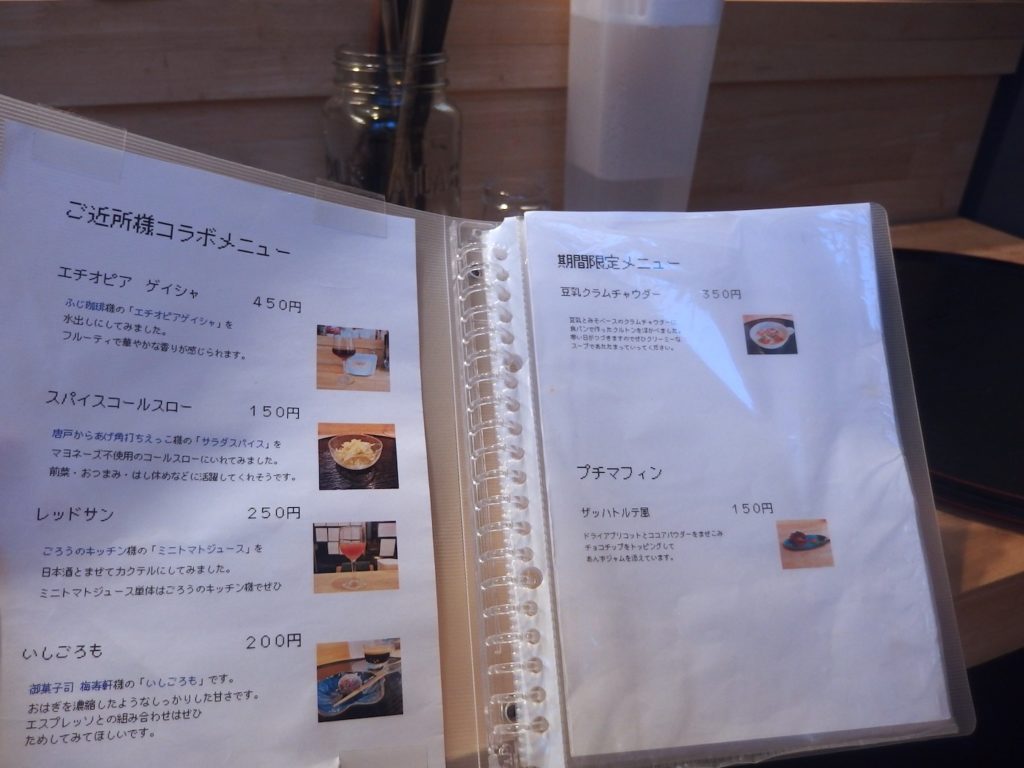 ご近所様コラボメニュー
エチオピア ゲイシャ 450円
ふじ珈琲様の「エチオピアゲイシャ」を
水出しにしてみました。
フルーティで華やかな香りが感じられます。
スパイスコールスロー 150円
唐戸からあげ角打ちえっこ様の「サラダスパイス」を
マヨネーズ不使用のコールスローにいれてみました。
前菜・おつまみ・はし休めなどに活躍してくれそうです。
レッドサン 250円
ごろうのキッチン様の「ミニトマトジュース」を
日本酒とまぜてカクテルにしてみました。
ミニトマトジュース単体はごろうのキッチン様でぜひ
いしごろも 200円
御菓子司 梅寿軒様の「いしごろも」です。
おはぎを濃縮したようなしっかりした甘さです。
エスプレッソとの組み合わせはぜひ
ためしてみてほしいです。
期間限定メニュー
豆乳クラムチャウダー 350円
豆乳とみそベースのクラムチャウダーに
食パンで作ったクルトンを浮かべました。
寒い日がつづきますのでぜひクリーミーな
スープであたたまっていってください。
プチマフィン
ザッハトルテ風 150円
ドライアプリコットとココアパウダーをまぜこみ
チョコチップをトッピングして
あんずジャムを添えています。